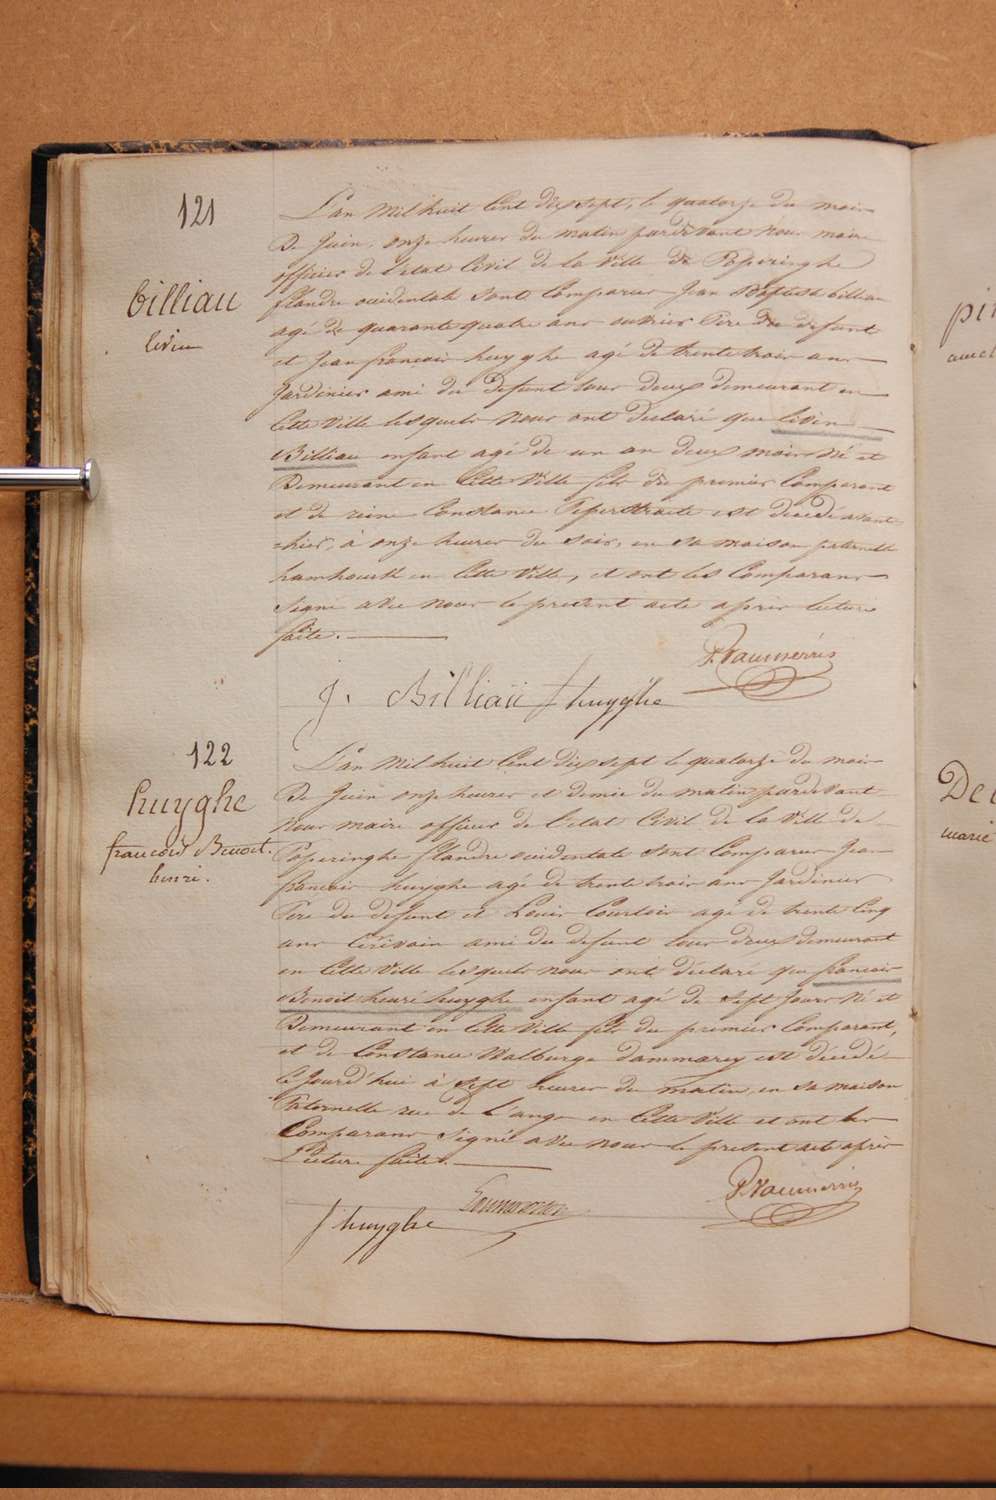 121
billiau
livin
L'an Mil huit Cent dixsept, le quatorze du mois
De Juin, onze heures du matin pardevant nous maire
officier de l'etat Civil de la Ville de Poperinghe
flandre occidentale sont Comparus Jean Baptiste billiau
agé de quarante quatre ans ouvrier Pere du defunt
et Jean francois huyghe agé de trente trois ans
Jardinier ami du Defunt tous deux demeurant en
Cette Ville lesquels Nous ont declaré que livin
Billiau enfant agé de un an deux mois Né et
Demeurant en Cette Ville fils du premier Comparant
et de reine Constance Peperstraete est decedé avant
=hier, à onze heures du soir, en sa maison paternelle
hamhoeck en Cette Ville, et ont les Comparans
signé avec nous le present acte après lecture
faite.
P. Vanmerris
J. Billiau f huyghe
122
huyghe
francois Benoit
henri.
L'an Mil huit Cent dixsept le quatorze du mois
De Juin onze heures et demie du matin pardevant
Nous maire officier de l'etat Civil de la Ville de
Poperinghe flandre occidentale sont Comparus Jean
francois huyghe agé de trente trois ans Jardinier
Pere du defunt et Louis Courtois agé de trente Cinq
ans Ecrivain ami du defunt tous deux demeurant
en Cette Ville lesquels nous ont déclaré que francois
Benoit henri huyghe enfant agé de sept Jours Né et
Demeurant en Cette Ville fils du premier Comparant,
et de Constance Walburge dammarey est décédé
Ce Jourd'hui à sept heures du matin, en sa maison
Paternelle rue de L'ange en Cette Ville et ont les
Comparans signé avec nous le present acte après
Lecture faite.
P. Vanmerris
f huyghe
pi
De
marie